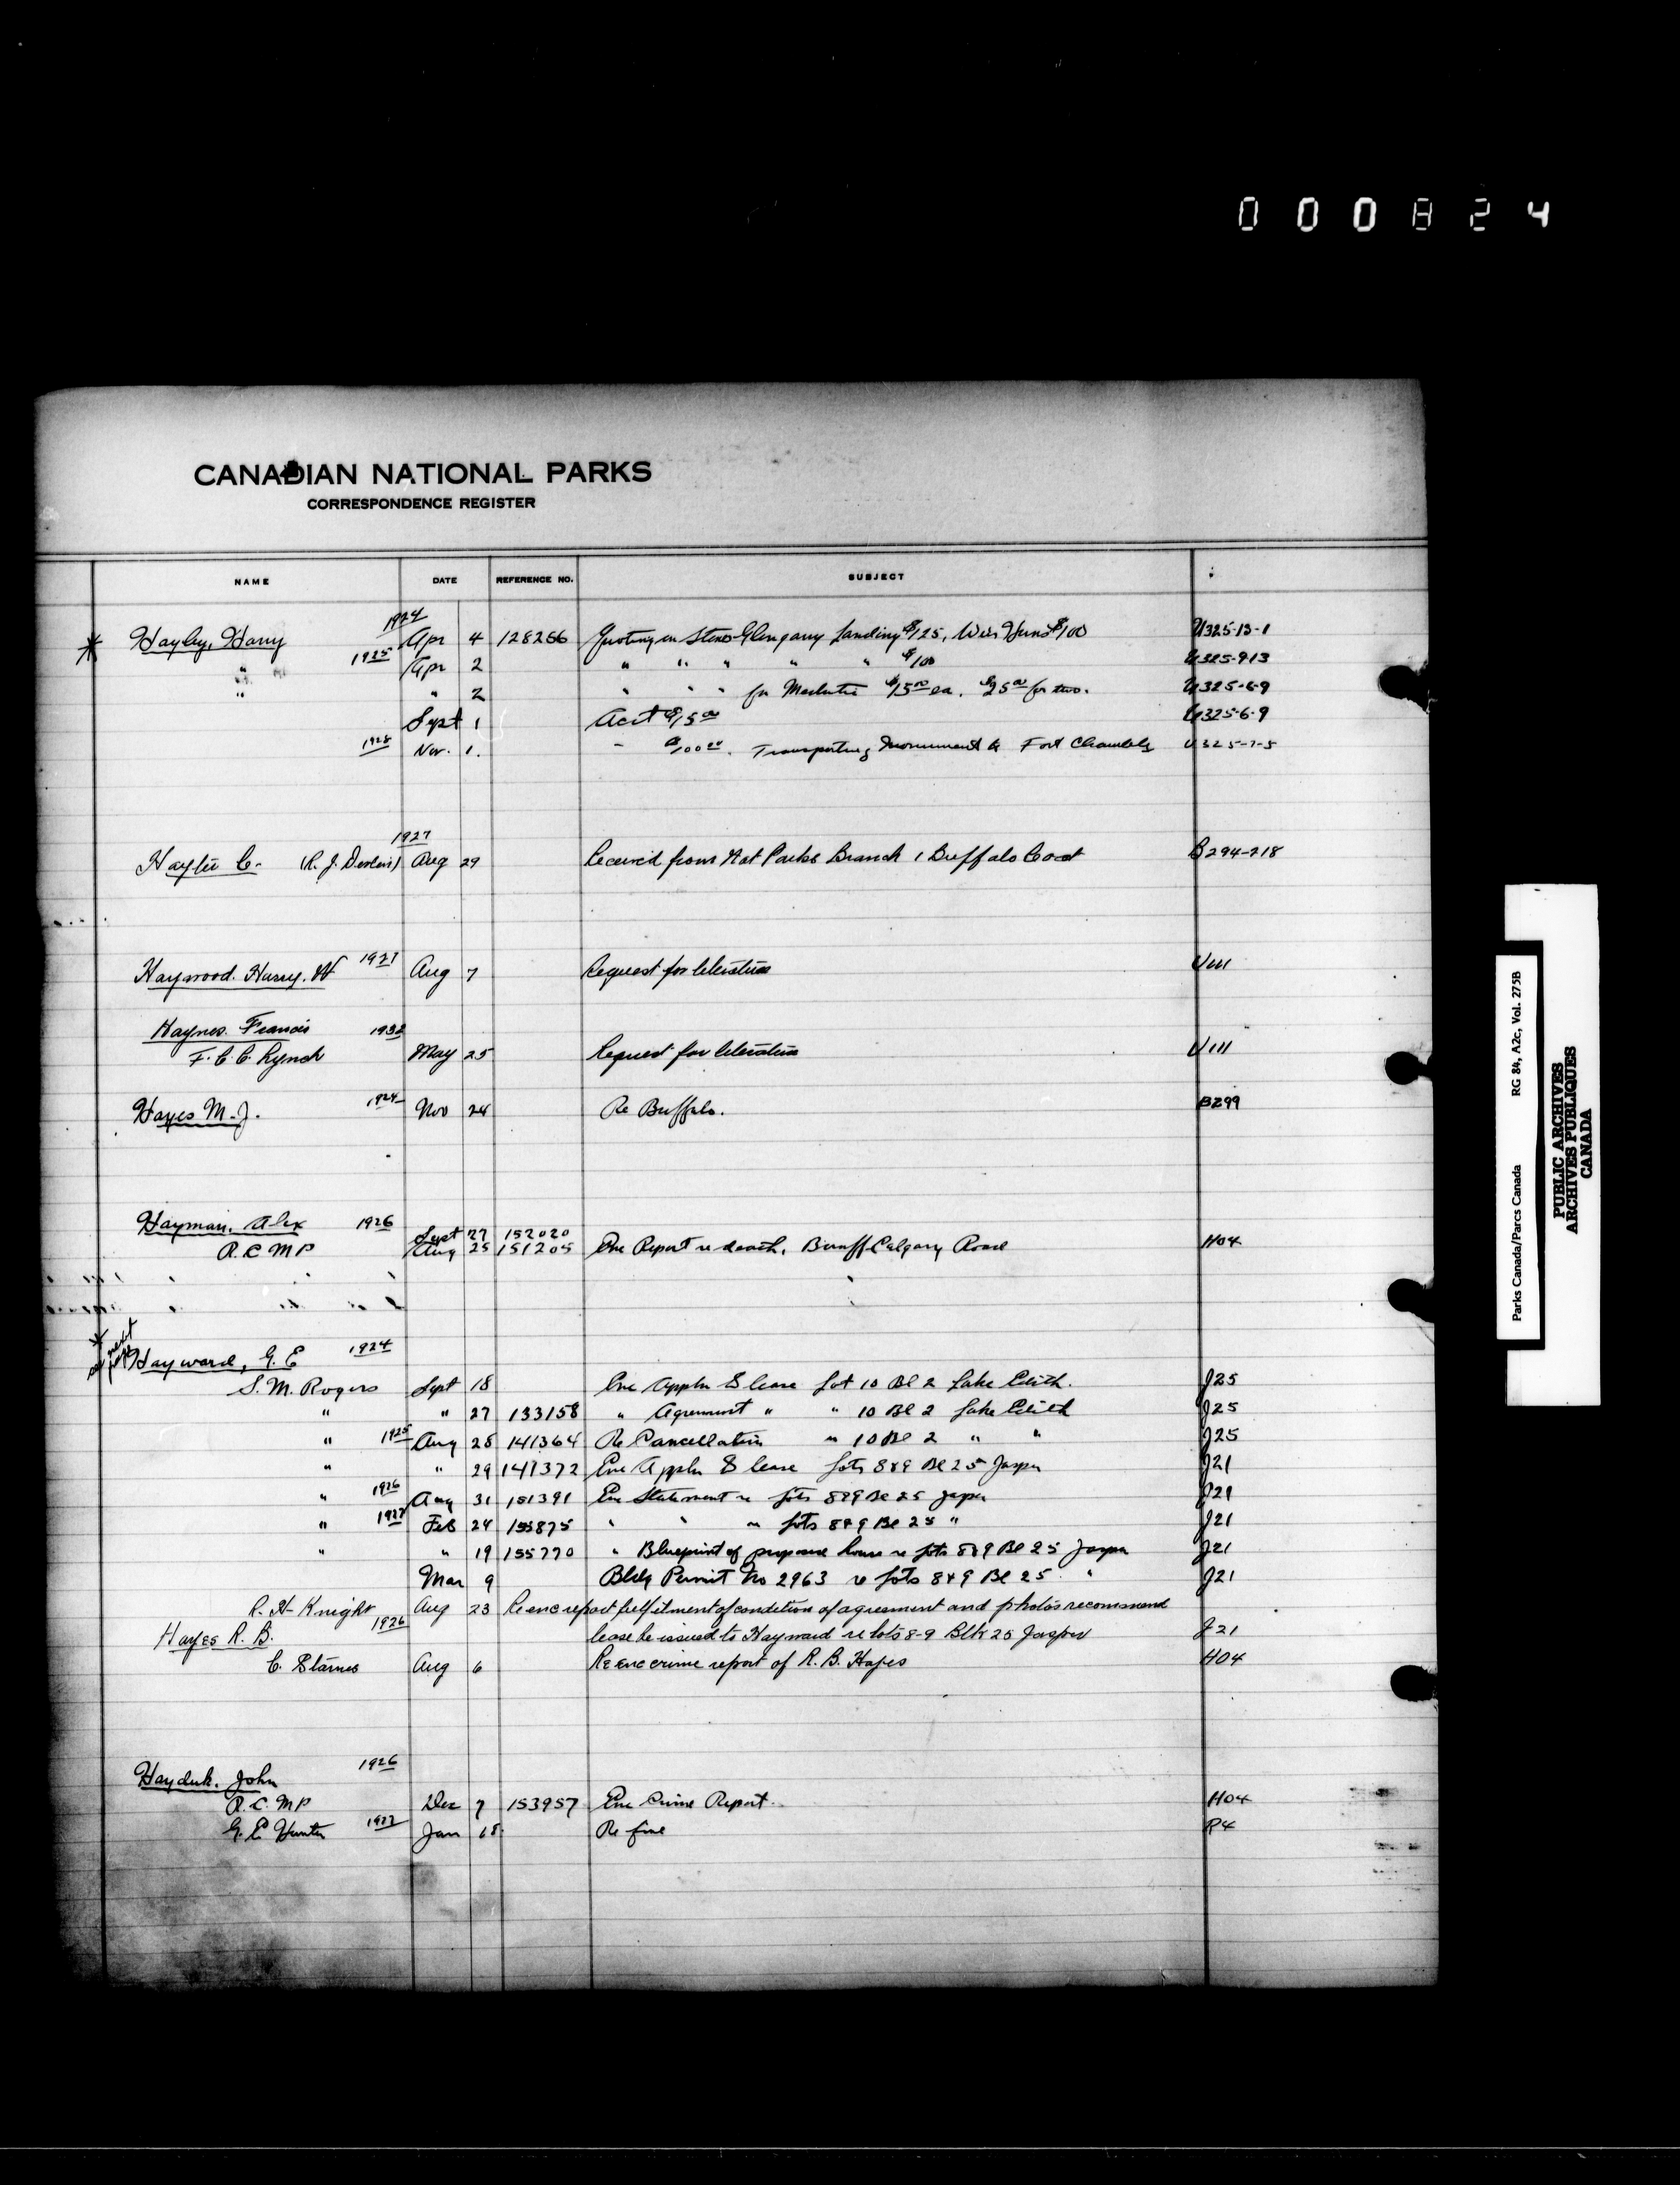 0 0 0 8 2 4
CANADIAN NATIONAL PARKS
CORRESPONDENCE REGISTER
NAME DATE REFERENCE NO. SUBJECT
1924
Hayley, Harry Apr 4 128266 Quoting on Stone Glengarry Landing $125, $100 U325-13-1
" 1925 Apr 2 " " " " " $100 U325-9-13
" " 2 " " " for $15.00 ea. $25.00 for two. U325-6-9
Sept 1 Acct $15.00 U325-6-9
1928 Nov. 1. " $100.00. Transporting Monument to Fort Chambly U325-7-5
1927
Hayter C. (R. J. Devlin) Aug 29 Received from Nat Parks Branch 1 Buffalo Coat B294-218
Haywood. Harry. W 1927 Aug 7 Request for literature U111
Haynes. Francis 1932
F. C. C. Lynch May 25 Request for literature U111
Hayes M. J. 1924 Nov 24 Re Buffalo. B299
Hayman, Alex 1926 Sept 27 152020
R. C. M P Aug 25 151205 Enc Report re death, Banff Calgary Road H04
* see next page
Hayward, G. E 1924
S. M. Rogers Sept 18 Enc Appln & lease Lot 10 Bl 2 Lake Edith. J25
" " 27 133158 " Agreement " " 10 Bl 2 Lake Edith J25
" 1925 Aug 28 141364 Re Cancellation " 10 Bl 2 " " J25
" " 29 141372 Enc Appln & lease Lots 8&9 Bl 25 Jasper J21
" 1926 Aug 31 151391 Enc Statement re Lots 8&9 Bl 25 Jasper J21
" 1927 Feb 24 155875 " " " Lots 8&9 Bl 25 " J21
" " 19 155770 " Blueprint of proposed house re Lots 8&9 Bl 25 Jasper J21
Mar 9 Bldg Permit No 2963 re Lots 8&9 Bl 25 " J21
R. H. Knight Aug 23 Re enc report fulfilment of condition of agreement and photos recommend
Hayes R. B. 1926 lease be issued to Hayward re lots 8-9 Blk 25 Jasper J21
C. Starnes Aug 6 Re enc crime report of R. B. Hayes H04
Hayduk. John 1926
R. C. MP Dec 7 153957 Enc Crime Report. H04
G. E Hunter 1927 Jan 18 Re fine R4
Parks Canada/Parcs Canada RG 84, A2c, Vol. 275B
PUBLIC ARCHIVES
ARCHIVES PUBLIQUES
CANADA